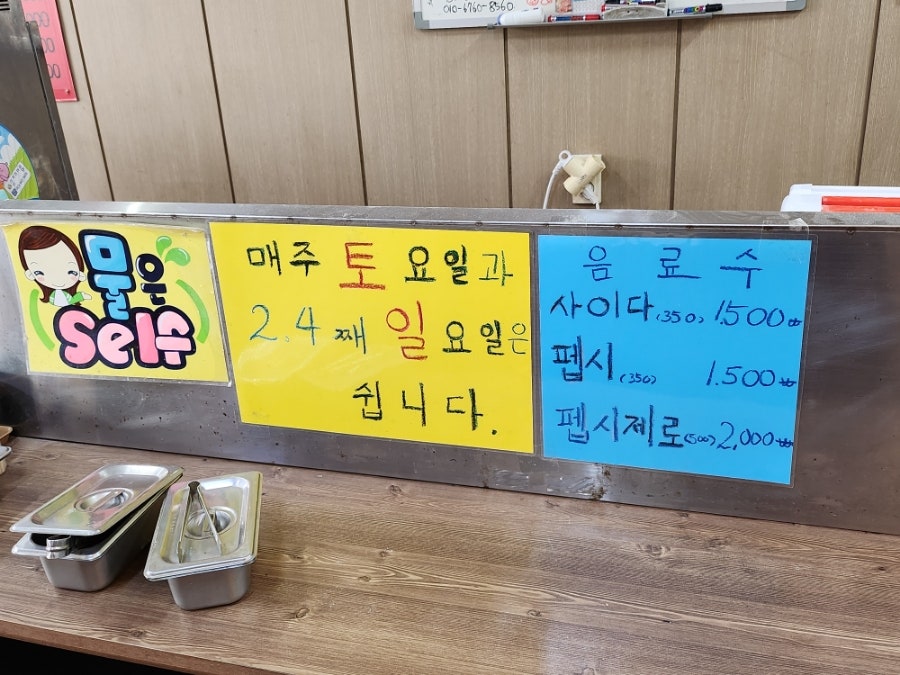 010-6760-8560
물은
Sel수
매주 토요일과
2.4 째 일요일은
쉽니다.
음료수
사이다(350) 1.500₩
펩시(350) 1.500₩
펩시제로(500) 2,000₩